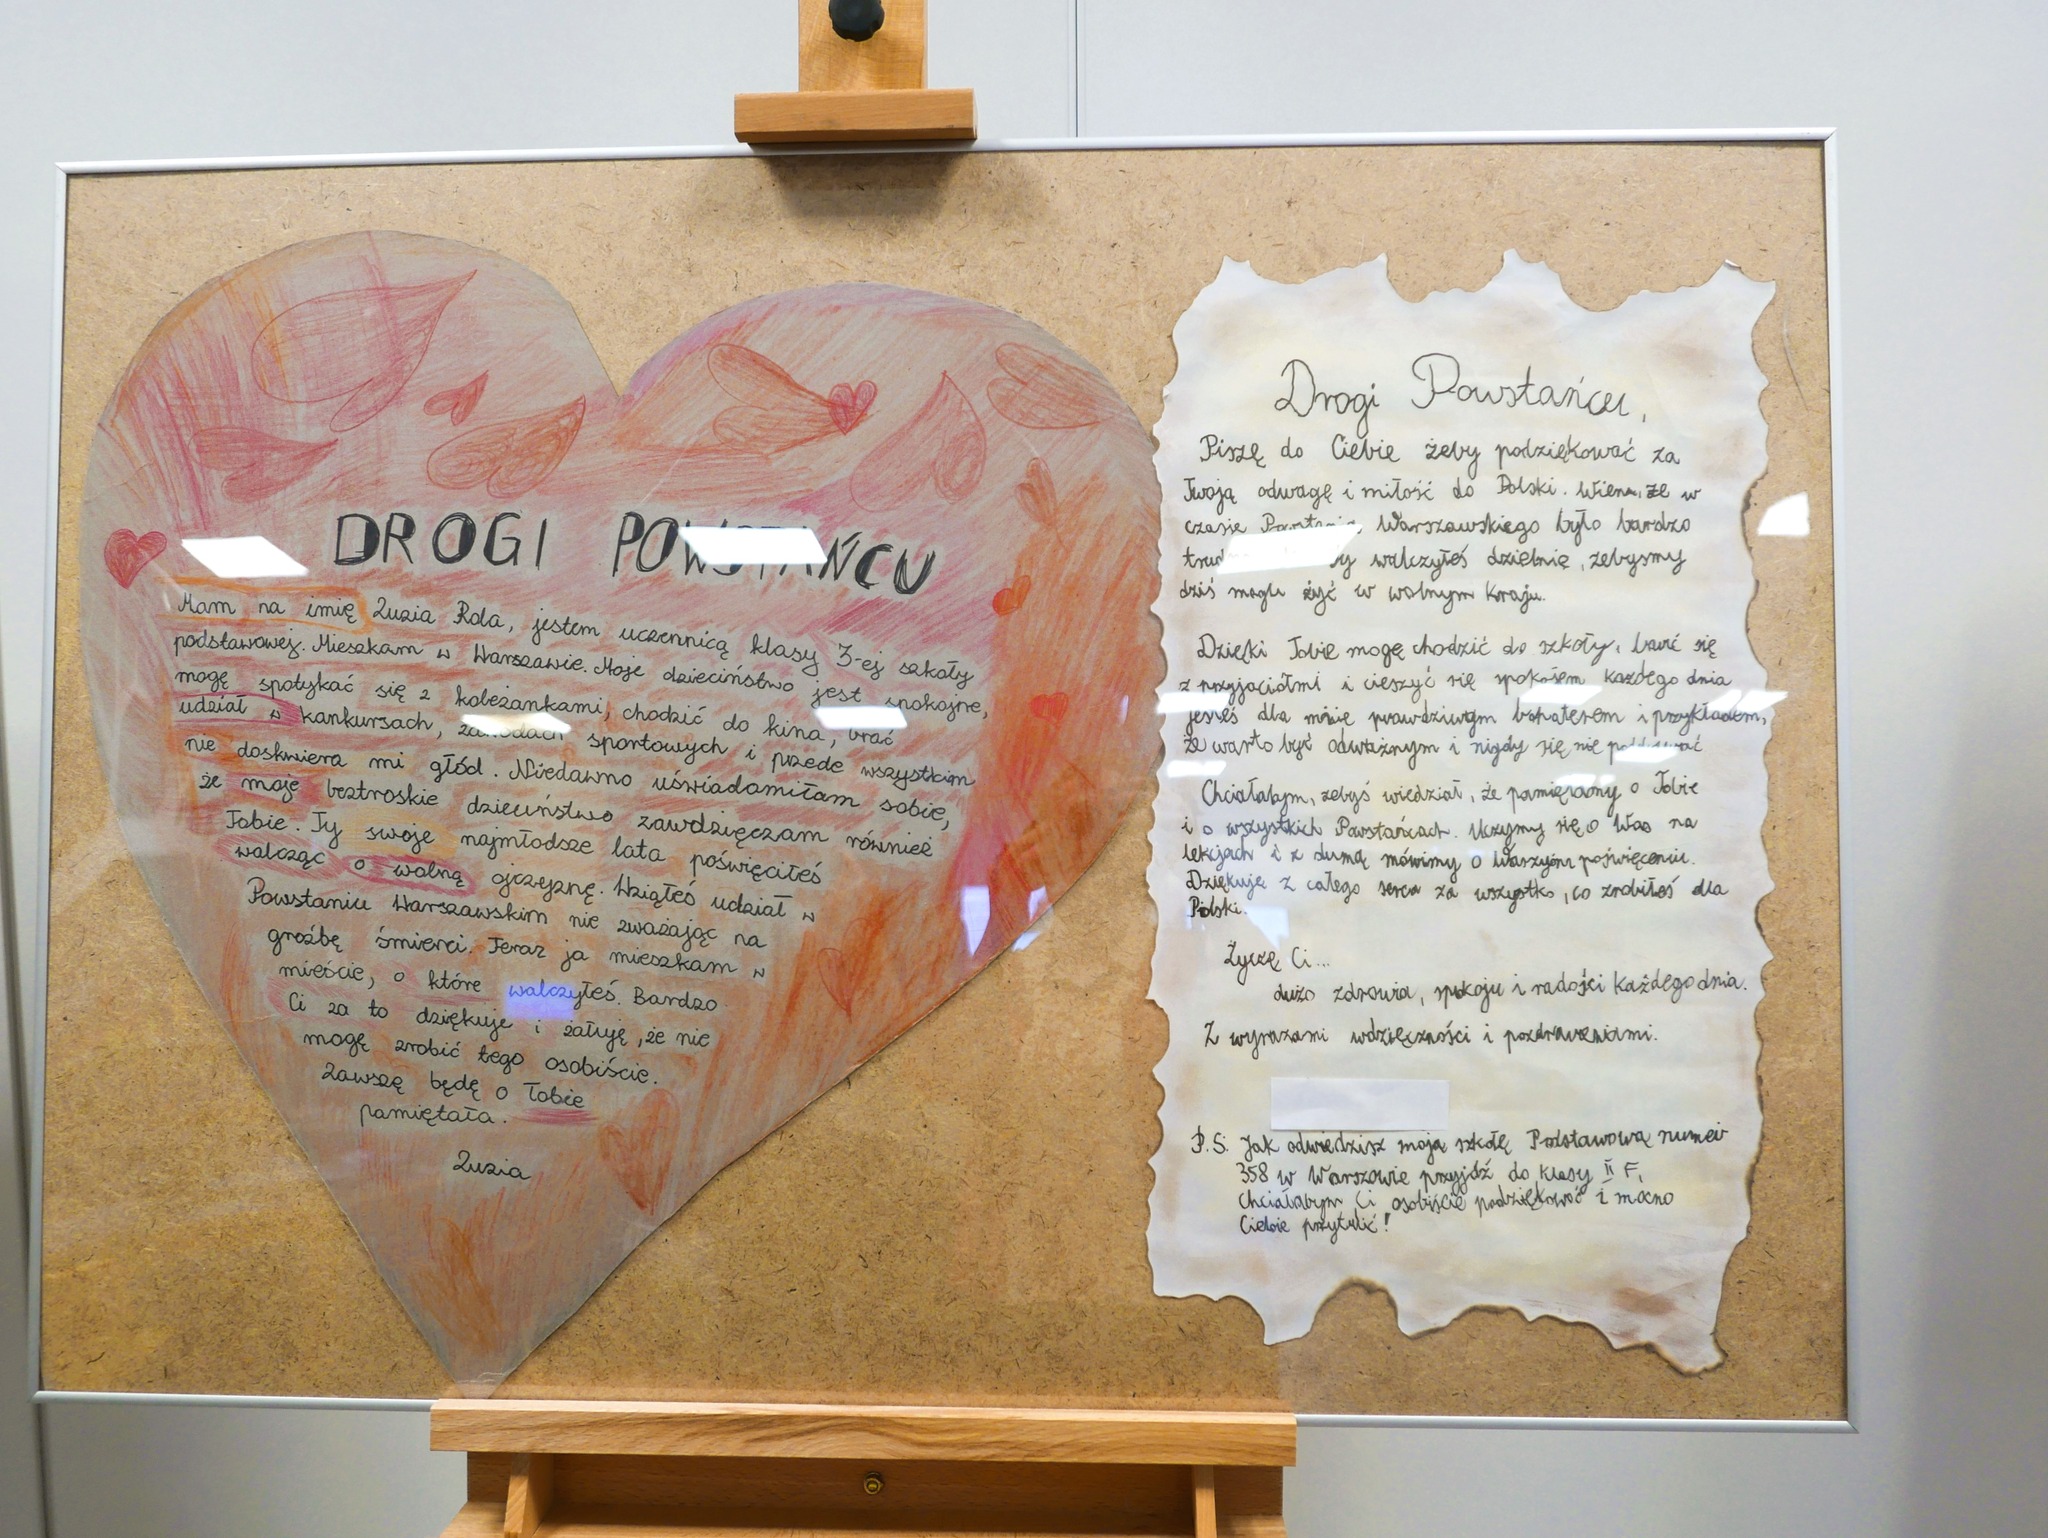 DROGI POWSTAŃCU
Mam na imię Zuzia Rola, jestem uczennicą klasy 3-ej szkoły
podstawowej. Mieszkam w Warszawie. Moje dzieciństwo jest spokojne,
mogę spotykać się z koleżankami, chodzić do kina, brać
udział w konkursach, zawodach sportowych i przede wszystkim
nie doskwiera mi głód. Niedawno uświadomiłam sobie,
że moje beztroskie dzieciństwo zawdzięczam również
Tobie. Ty swoje najmłodsze lata poświęciłeś
walcząc o wolną ojczyznę. Wziąłeś udział w
Powstaniu Warszawskim nie zważając na
groźbę śmierci. Teraz ja mieszkam w
mieście, o które walczyłeś. Bardzo
Ci za to dziękuje i żałuję, że nie
mogę zrobić tego osobiście.
Zawszę będę o Tobie
pamiętała.
Zuzia
Drogi Powstańcu,
Piszę do Ciebie żeby podziękować za
Twoją odwagę i miłość do Polski. Wiem, że w
czasie Powstania Warszawskiego było bardzo
walczyłeś dzielnie, żebyśmy
dziś mogli żyć w wolnym kraju.
Dzięki Tobie mogę chodzić do szkoły, bawić się
z przyjaciółmi i cieszyć się spokojem każdego dnia
jesteś dla mnie prawdziwym bohaterem i przykładem,
że warto być odważnym i nigdy się nie poddawać
Chciałabym, żebyś wiedział, że pamiętamy o Tobie
i o wszystkich Powstańcach. Uczymy się o Was na
lekcjach i z dumą mówimy o Waszym poświęceniu.
Dziękuję z całego serca za wszystko, co zrobiłeś dla
Polski.
Życzę Ci...
dużo zdrowia, spokoju i radości każdego dnia.
Z wyrazami wdzięczności i pozdrowieniami.
P.S. Jak odwiedzisz moją szkołę Podstawową numer
358 w Warszawie przyjdź do klasy II F,
Chciałabym Ci osobiście podziękować i mocno
Ciebie przytulić!